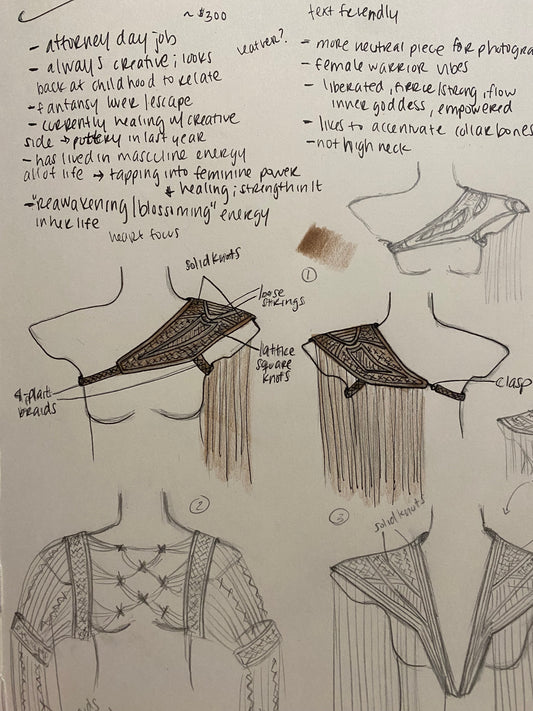 ~ $300
- attorney day job
- always creative; looks
back at childhood to relate
- fantansy lover/escape
- currently healing w/ creative
side → pottery in last year
- has lived in masculine energy
all of life → tapping into feminine power
* healing; strength in it
- "reawakening/blossiming" energy
in her life
heart focus
leather?
text friendly
- more neutral piece for photogra
- female warrior vibes
- liberated, fierce/strong, flow
inner goddess, empowered
- likes to accentuate collar bones
- not high neck
1
solid knots
loose
strings
lattice
square
knots
4-plait
braids
clasp
2
3
solid knots